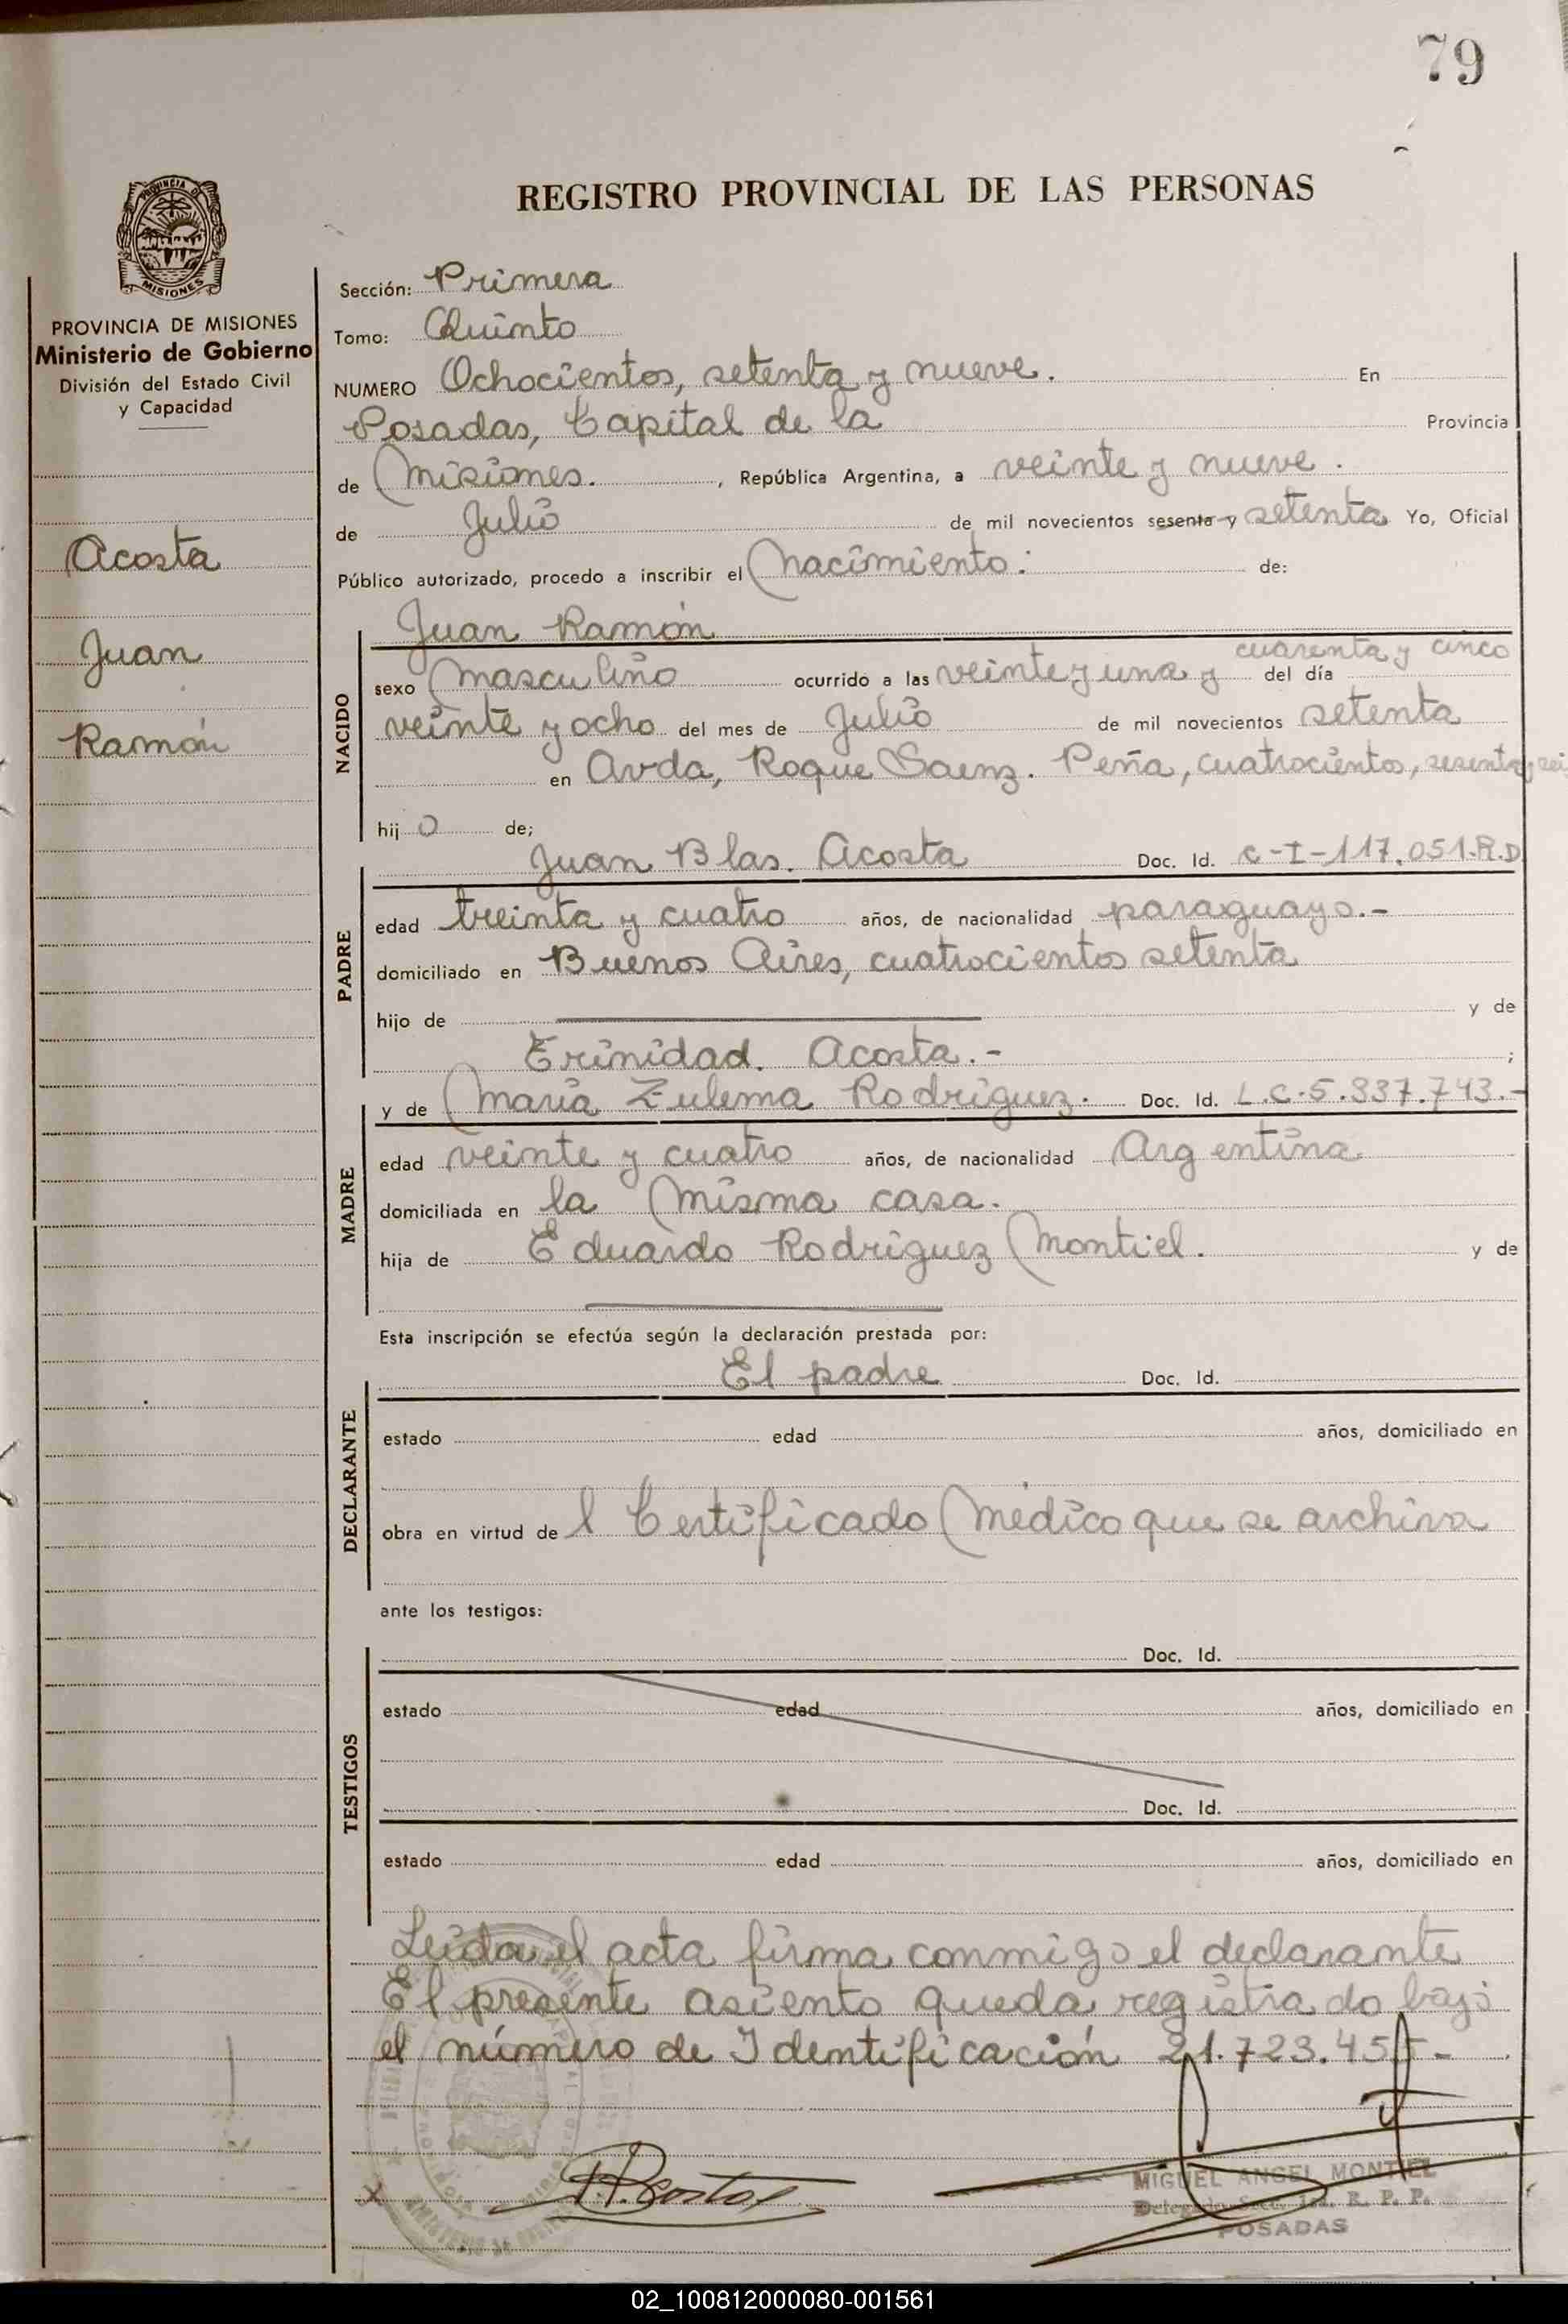 79
REGISTRO PROVINCIAL DE LAS PERSONAS
PROVINCIA DE MISIONES
Ministerio de Gobierno
División del Estado Civil
y Capacidad
Acosta
Juan
Ramón
Sección: Primera
Tomo: Quinto
NUMERO Ochocientos, setenta y nueve. En
Posadas, Capital de la Provincia
de Misiones. , República Argentina, a veinte y nueve.
de Julio de mil novecientos sesenta y setenta Yo, Oficial
Público autorizado, procedo a inscribir el Nacimiento: de:
Juan Ramón
NACIDO
cuarenta y cinco
sexo masculino ocurrido a las veinte y una y del día
veinte y ocho del mes de Julio de mil novecientos setenta
en Avda, Roque Saenz. Peña, cuatrocientos, sesenta y
hij o de;
Juan Blas. Acosta Doc. Id. C-I-117.051.R.D
PADRE
edad treinta y cuatro años, de nacionalidad paraguayo.-
domiciliado en Buenos Aires, cuatrocientos setenta
hijo de y de
Trinidad. Acosta.- ;
y de Maria Zulema Rodriguez. Doc. Id. L.C.5.337.743.-
MADRE
edad veinte y cuatro años, de nacionalidad Argentina
domiciliada en la Misma casa.
hija de Eduardo Rodriguez Montiel. y de
Esta inscripción se efectúa según la declaración prestada por:
El padre Doc. Id.
DECLARANTE
estado edad años, domiciliado en
obra en virtud de l Certificado Médico que se archiva
ante los testigos:
Doc. Id.
TESTIGOS
estado edad años, domiciliado en
Doc. Id.
estado edad años, domiciliado en
Leida el acta firma conmigo el declarante
El presente asiento queda registrado bajo
el número de Identificación 21.723.455-
MIGUEL ANGEL MONTIEL
R. P. P.
POSADAS
02_100812000080-001561